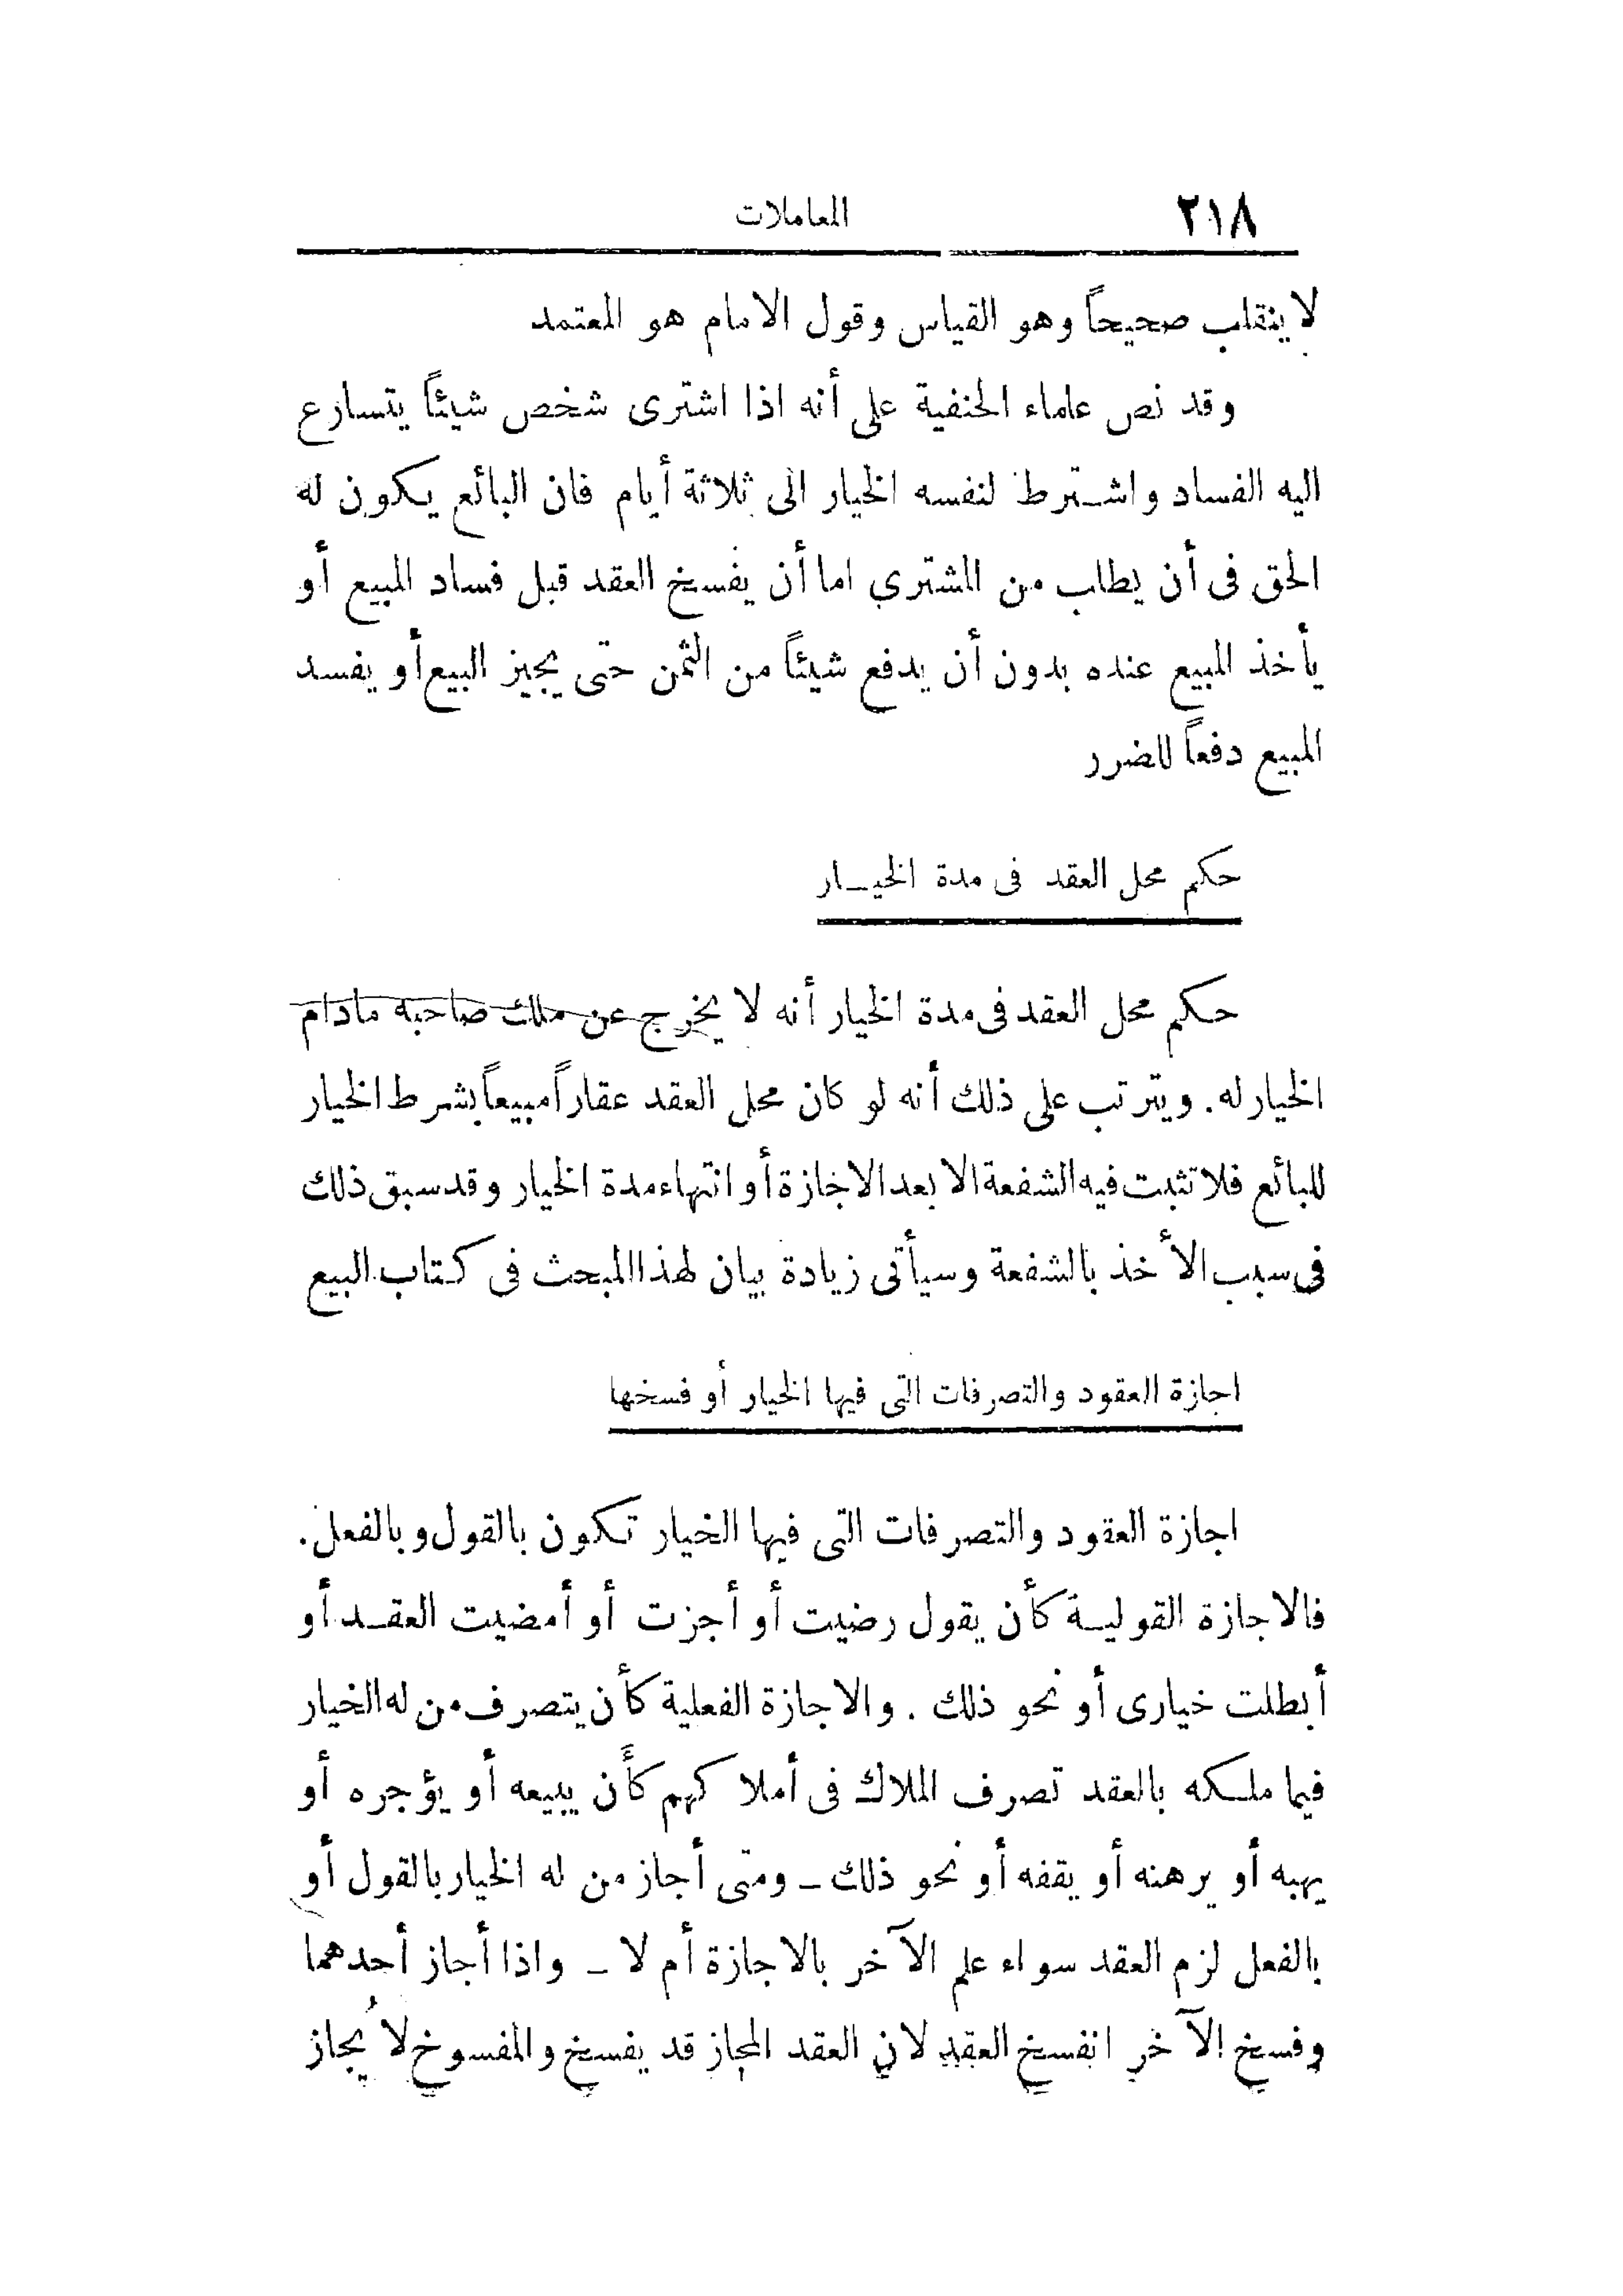 ٢١٨ المعاملات
لا ينقلب صحيحاً وهو القياس وقول الامام هو المعتمد
وقد نص علماء الحنفية على أنه اذا اشترى شخص شيئاً يتسارع
اليه الفساد واشترط لنفسه الخيار الى ثلاثة أيام فان البائع يكون له
الحق فى أن يطلب من المشترى اما أن يفسخ العقد قبل فساد المبيع أو
يأخذ المبيع عنده بدون أن يدفع شيئاً من الثمن حتى يجيز البيع أو يفسد
المبيع دفعاً للضرر
حكم محل العقد فى مدة الخيار
حكم محل العقد فى مدة الخيار أنه لا يخرج عن ملك صاحبه مادام
الخيار له. ويترتب على ذلك أنه لو كان محل العقد عقاراً مبيعاً بشرط الخيار
للبائع فلا تثبت فيه الشفعة الا بعد الاجازة أو انتهاء مدة الخيار وقد سبق ذلك
فى سبب الأخذ بالشفعة وسيأتى زيادة بيان لهذا المبحث فى كتاب البيع
اجازة العقود والتصرفات التى فيها الخيار أو فسخها
اجازة العقود والتصرفات التى فيها الخيار تكون بالقول وبالفعل.
فالاجازة القولية كأن يقول رضيت أو أجزت أو أمضيت العقد أو
أبطلت خيارى أو نحو ذلك . والاجازة الفعلية كأن يتصرف من له الخيار
فيما ملكه بالعقد تصرف الملاك فى أملاكهم كأن يبيعه أو يؤجره أو
يهبه أو يرهنه أو يقفه أو نحو ذلك ـ ومتى أجاز من له الخيار بالقول أو
بالفعل لزم العقد سواء علم الآخر بالاجازة أم لا ـ واذا أجاز أحدهما
وفسخ الآخر انفسخ العقد لان العقد المجاز قد يفسخ والمفسوخ لا يُجاز